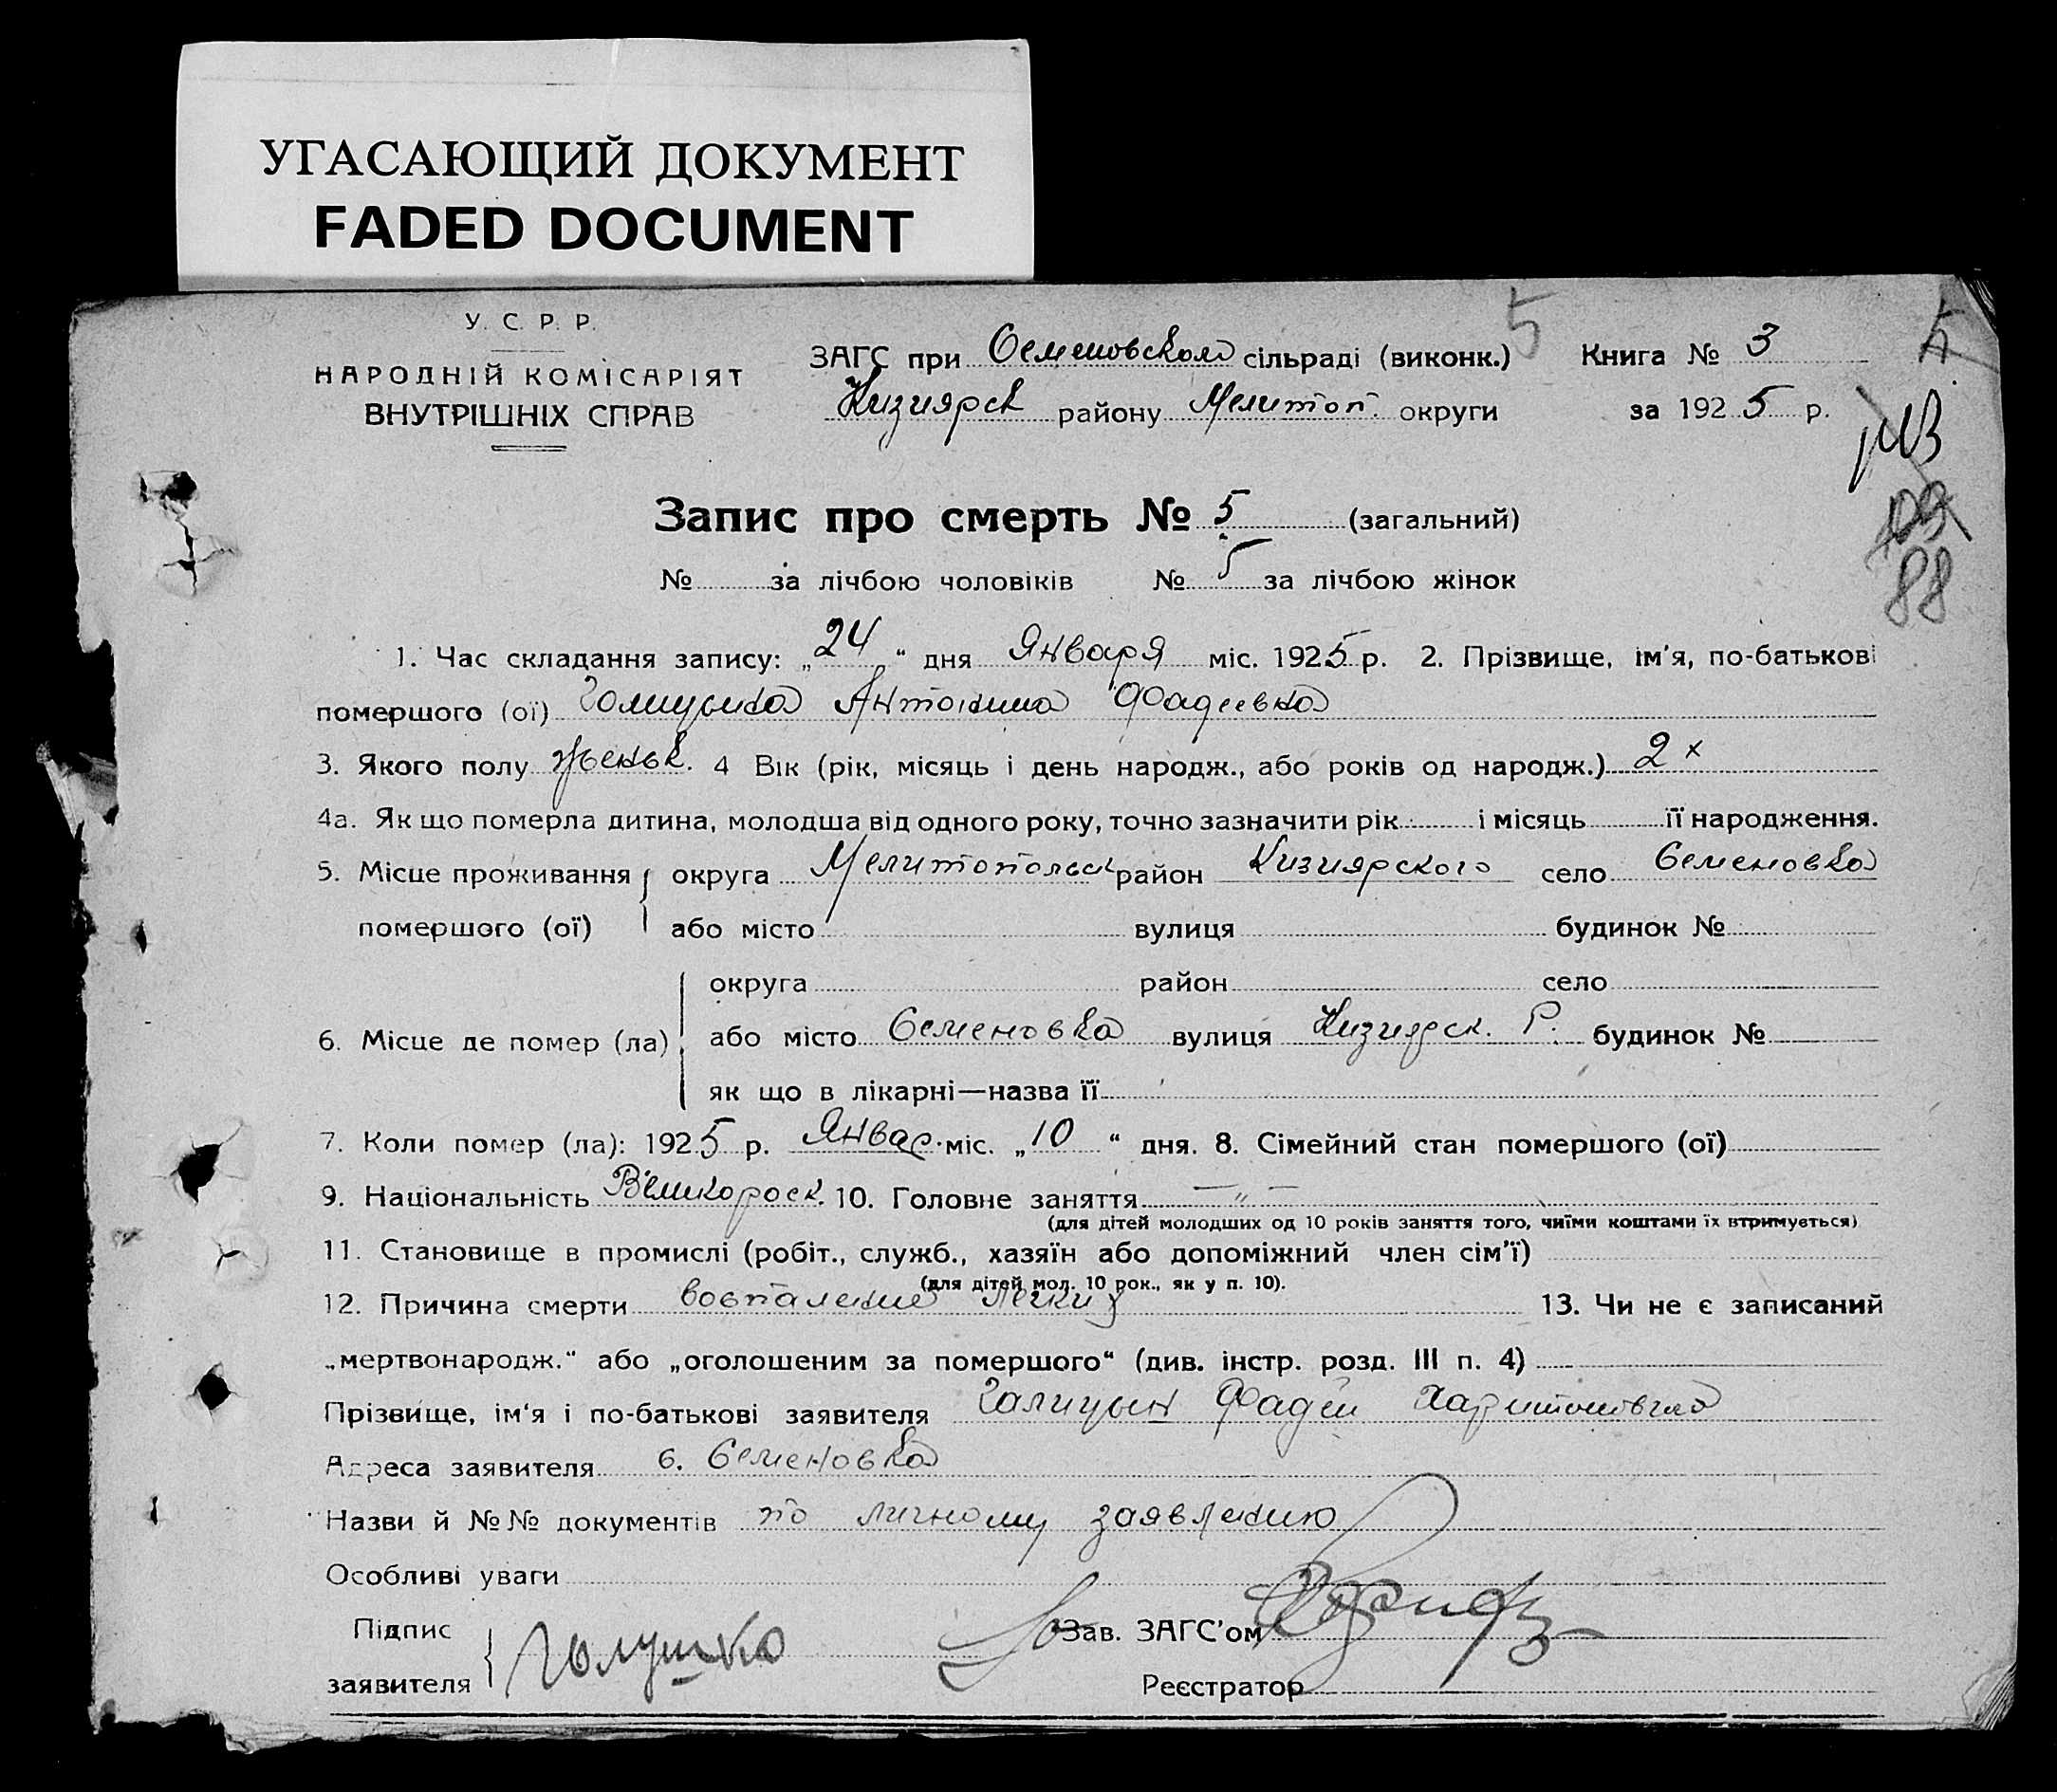 УГАСАЮЩИЙ ДОКУМЕНТ
FADED DOCUMENT
У. С. Р. Р.
НАРОДНІЙ КОМІСАРІЯТ
ВНУТРІШНІХ СПРАВ
5
ЗАГС при Семеновском сільраді (виконк.) Книга № 3
Кизиярск району Мелитоп. округи за 1925 р.
Запис про смерть № 5 (загальний)
88
№ за лічбою чоловіків № 5 за лічбою жінок
1. Час складання запису: „24“ дня Января міс. 1925 р. 2. Прізвище, ім'я, по-батькові
помершого (ої) Голицына Антонина Фадеевна
3. Якого полу женск. 4 Вік (рік, місяць і день народж., або років од народж.) 2
4а. Як що померла дитина, молодша від одного року, точно зазначити рік і місяць її народження.
5. Місце проживання помершого (ої) округа Мелитопольск район Кизиярского село Семеновка
або місто вулиця будинок №
6. Місце де помер (ла) округа район село
або місто Семеновка вулиця Кизиярск. Р. будинок №
як що в лікарні—назва її
7. Коли помер (ла): 1925 р. Январ. міс. „10“ дня. 8. Сімейний стан помершого (ої)
9. Національність Великоросс. 10. Головне заняття — „ —
(для дітей молодших од 10 років заняття того, чиїми коштами їх втримується)
11. Становище в промислі (робіт., служб., хазяїн або допоміжний член сім'ї)
(для дітей мол. 10 рок., як у п. 10).
12. Причина смерти воспаление легких 13. Чи не є записаний
„мертвонародж.“ або „оголошеним за помершого“ (див. інстр. розд. III п. 4)
Прізвище, ім'я і по-батькові заявителя Галицын Фадей Харитонович
Адреса заявителя с. Семеновка
Назви й №№ документів по личному заявлению
Особливі уваги
Підпис заявителя Зав. ЗАГС'ом
Реєстратор